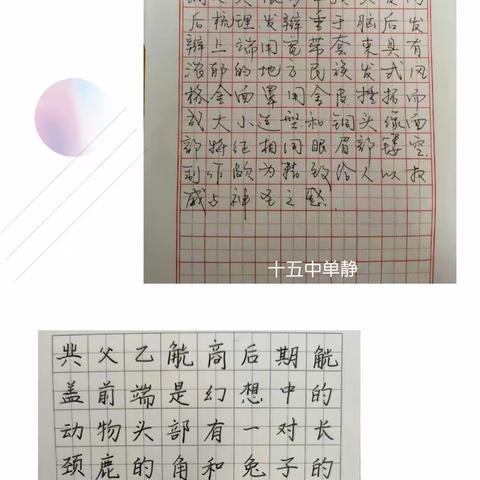 后梳理发辫垂于脑后发
辫上端用宽带套束具有
浓郁的地方民族发式风
格金面罩用金皮捶拓而
成大小造型和铜头像面
部特征相同眼眉部镂空
制作颇为精致给人以权
威与神圣之感
十五中单静
共父乙觥商后期觥
盖前端是幻想中的
动物头部有一对长
颈鹿的角和兔子的